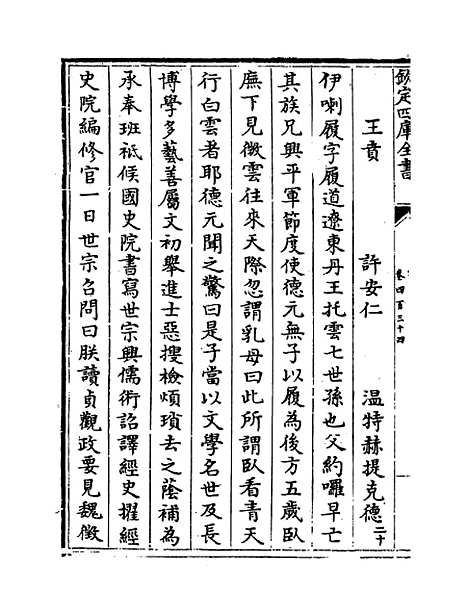 欽定四庫全書
卷四百三十四
王賁　許安仁　溫特赫提克德二十
伊喇履字履道遼東丹王托雲七世孫也父約囉早亡
其族兄興平軍節度使德元無子以履為後方五歲臥
廡下見微雲往來天際忽謂乳母曰此所謂臥看青天
行白雲者耶德元聞之驚曰是子當以文學名世及長
博學多藝善屬文初舉進士惡搜檢煩瑣去之蔭補為
承奉班祗候國史院書寫世宗興儒術詔譯經史擢經
史院編修官一日世宗召問曰朕讀貞觀政要見魏徵